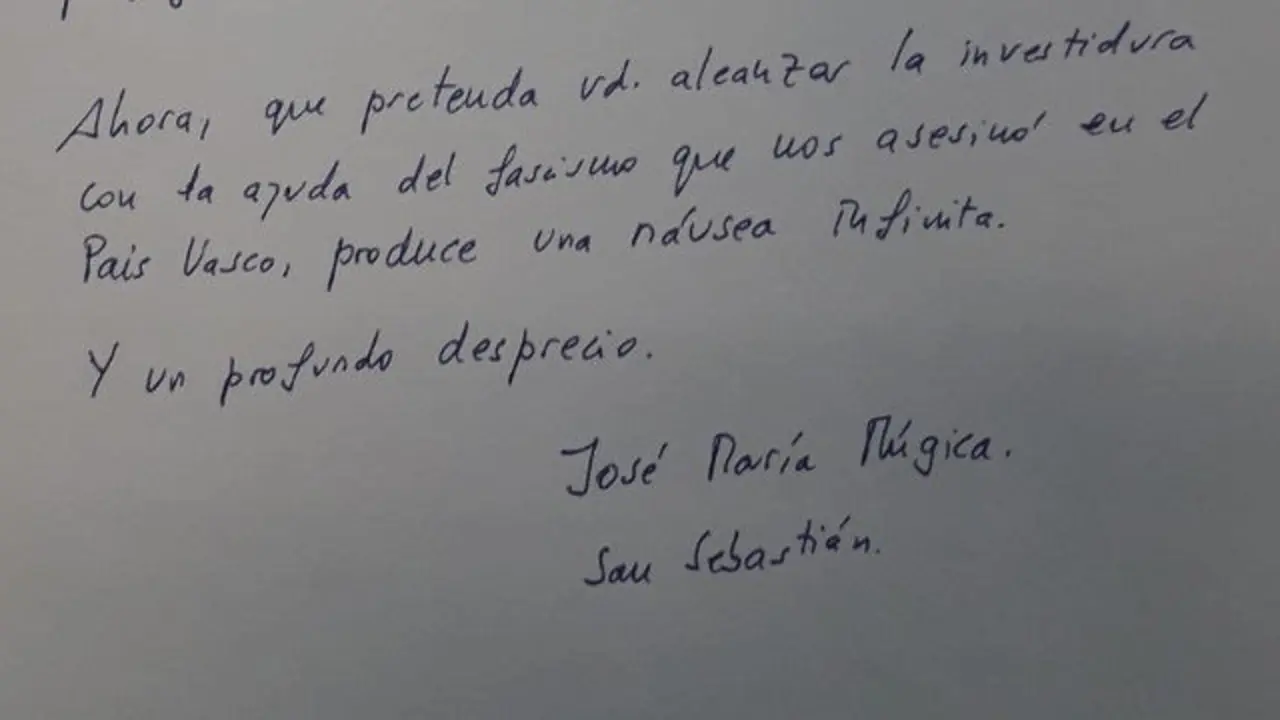 Ahora, que pretenda vd. alcanzar la investidura
con la ayuda del fascismo que nos asesinó en el
Pais Vasco, produce una náusea infinita.
Y un profundo desprecio.
José María Múgica.
San Sebastián.